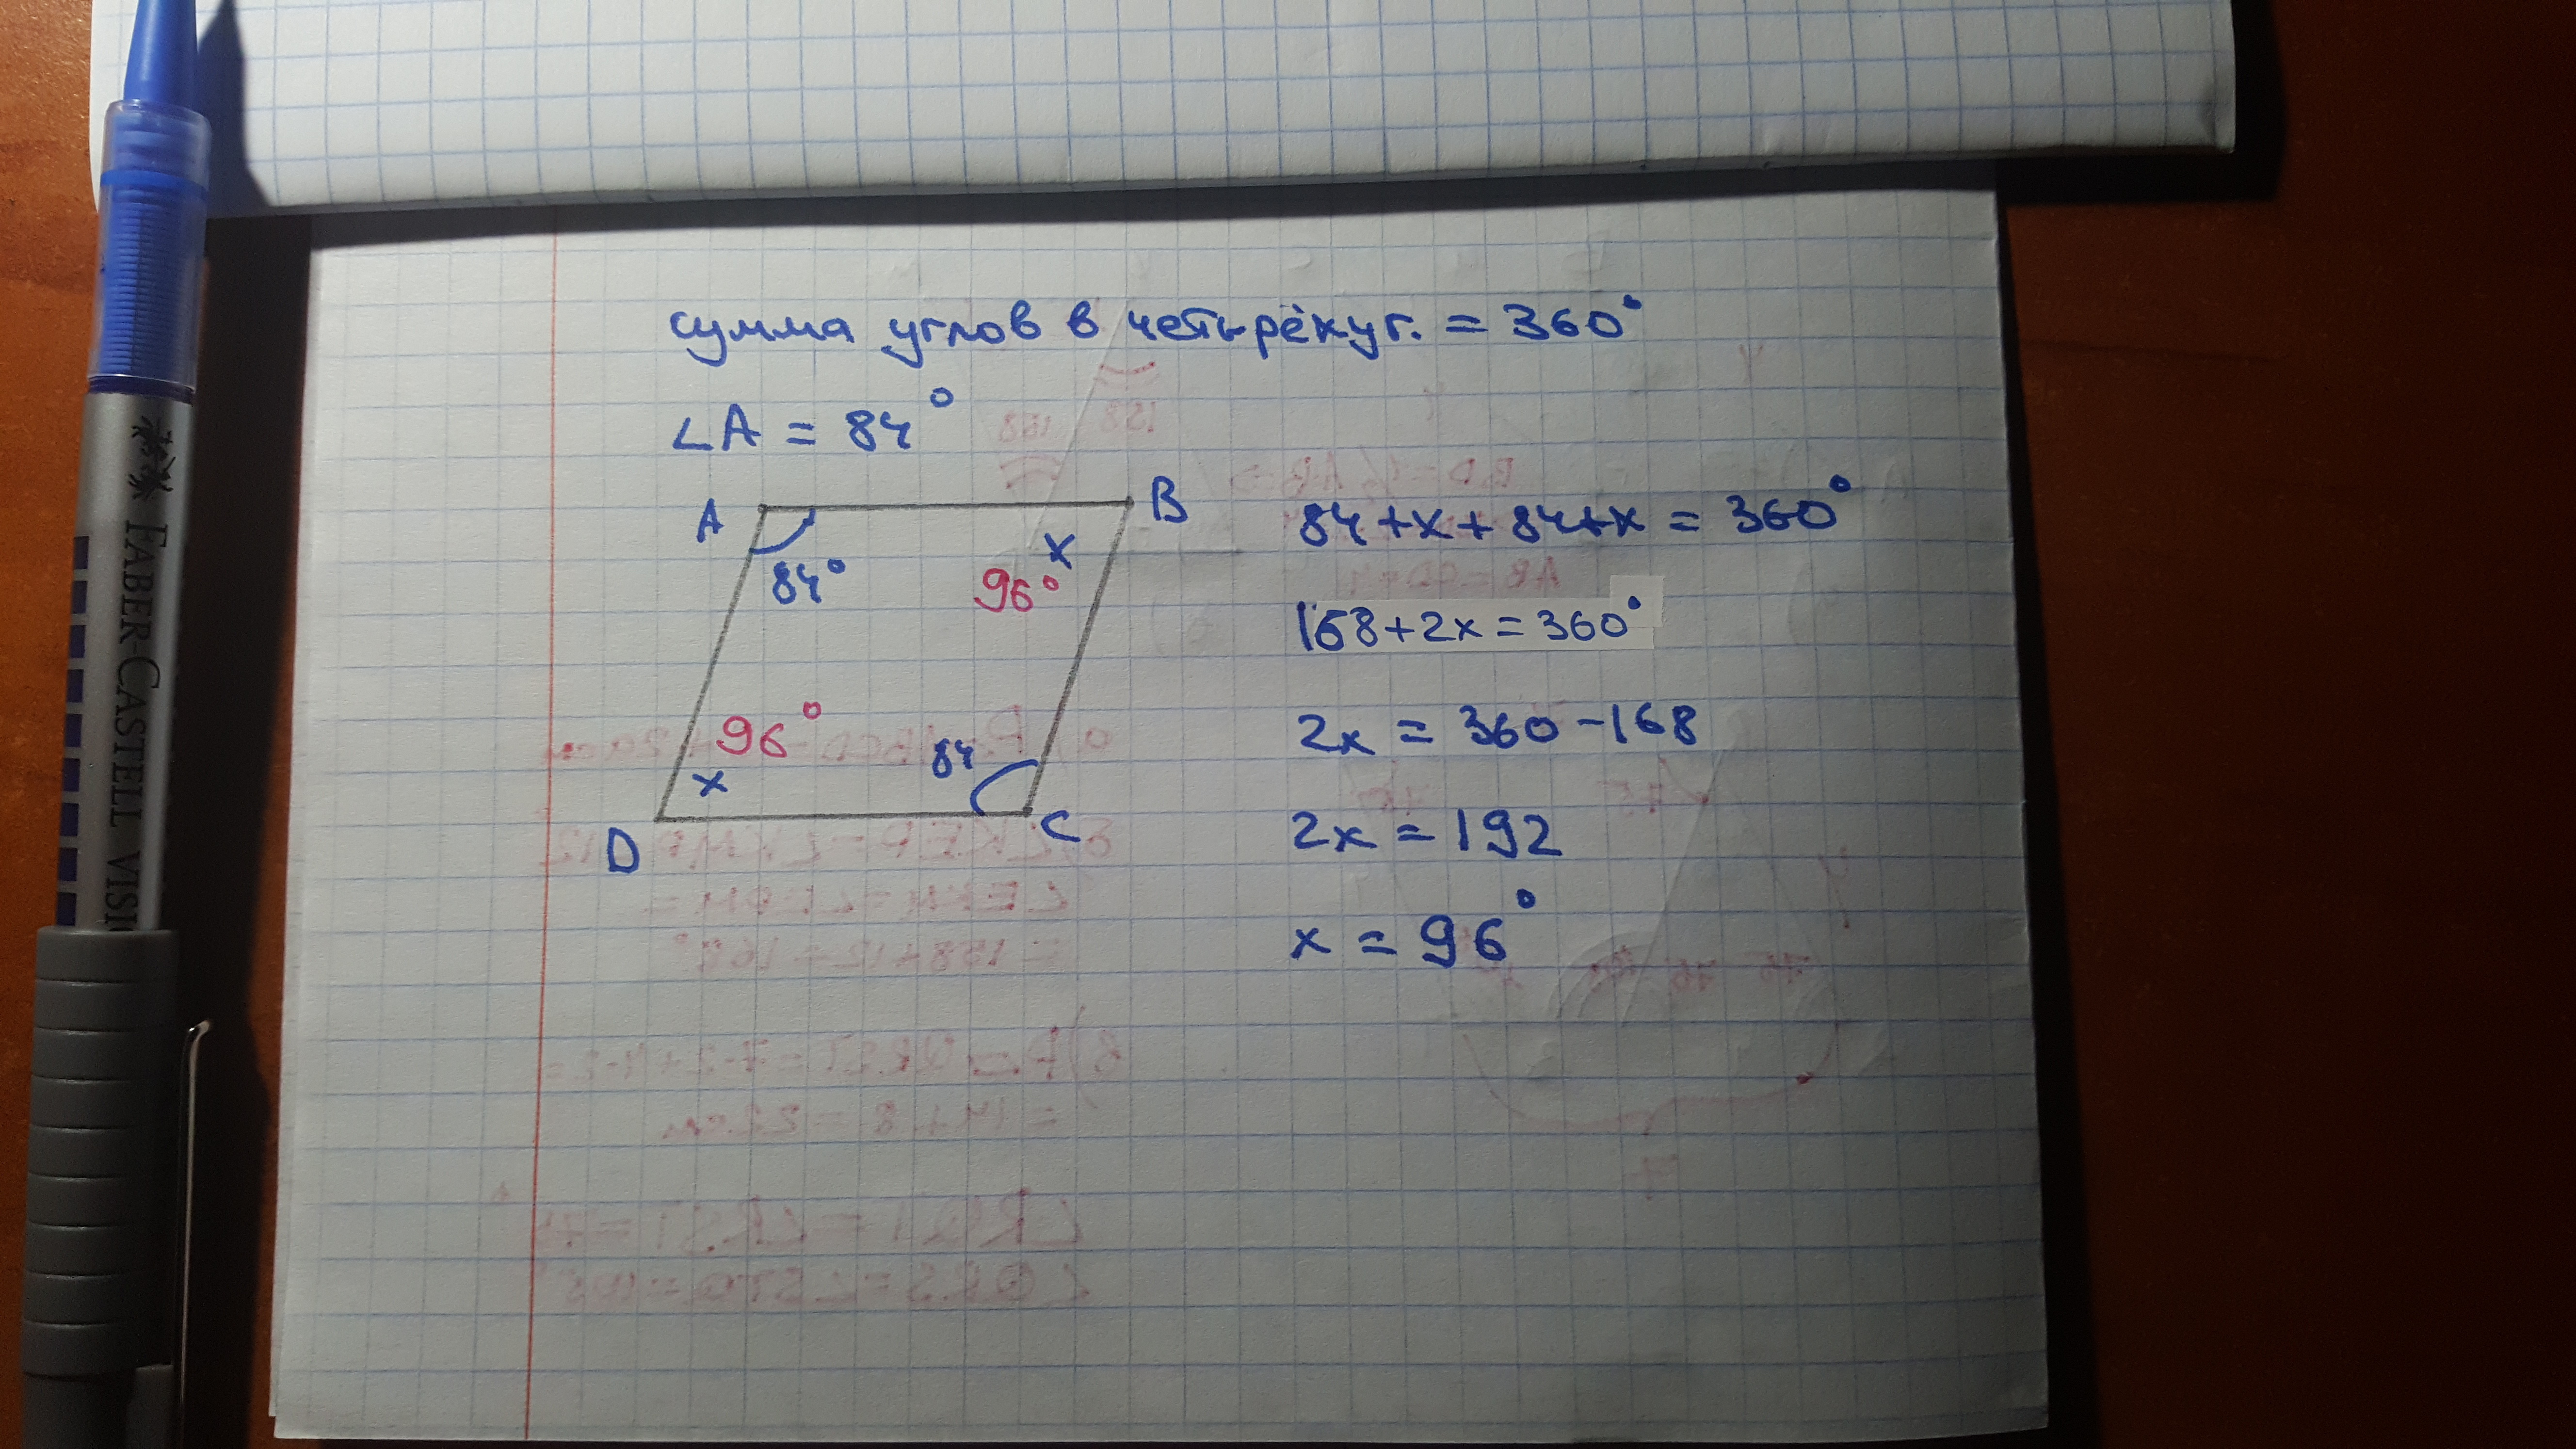 сумма углов в четырёхуг. = 360°
∠A = 84°
A
B
84°
x
96°
96°
x
84
D
C
84+x+84+x = 360°
168+2x=360°
2x = 360-168
2x = 192
x = 96°
FABER-CASTELL